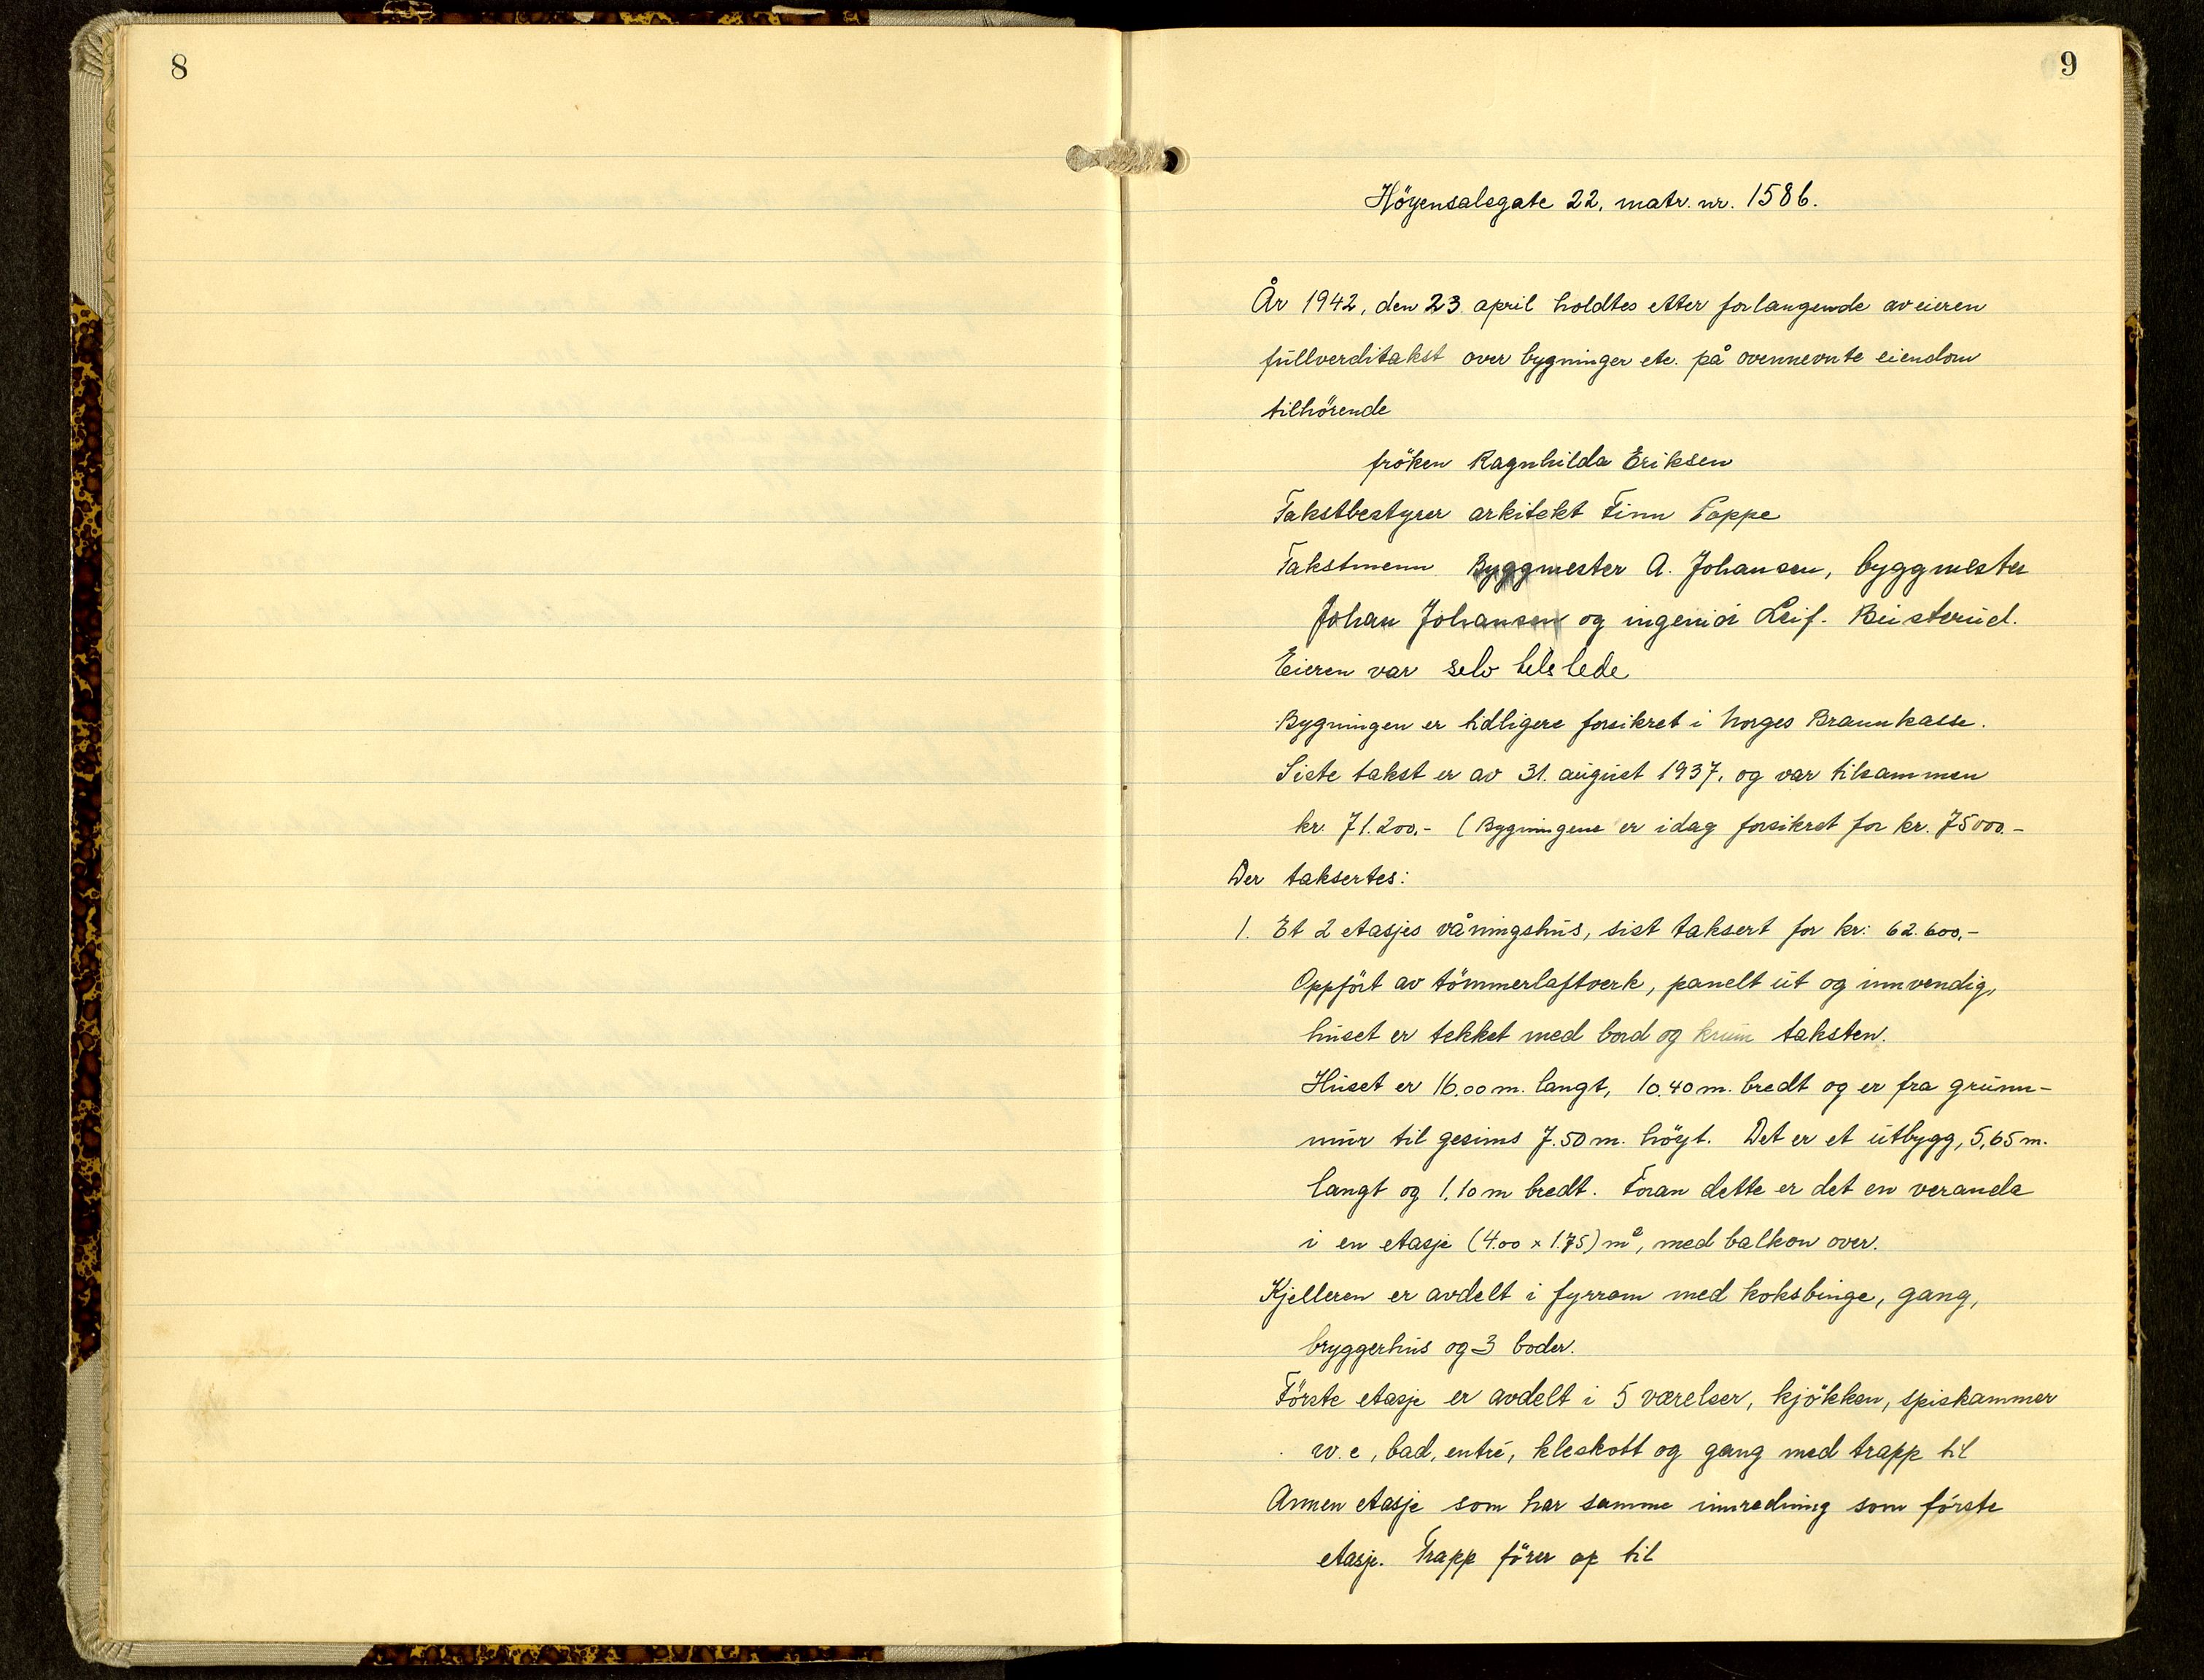 8
9
Höyensalsgate 22, matr. nr. 1586.
År 1942, den 23 april holdtes etter forlangende av eieren
fullverditakst over bygninger etc. på ovennevnte eiendom
tilhörende
fröken Ragnhilda Eriksen
Takstbestyrer arkitekt Finn Poppe
Takstmenn Byggmester A. Johansen, byggmester
Johan Johansen og ingeniör Leif. Busterud.
Eieren var selv tilstede
Bygningen er tidligere forsikret i Norges Brannkasse.
Siste takst er av 31. august 1937, og var tilsammen
kr. 71.200,- (Bygningene er idag forsikret for kr. 75000.-
Der taksertes:
1. Et 2 etasjes våningshus, sist taksert for kr: 62.600,-
Oppfört av tömmerlaftverk, panelt ut og innvendig,
huset er tekket med bord og krum taksten.
Huset er 16,00 m. langt, 10.40 m. bredt og er fra grunn-
mur til gesims 7.50 m. höyt. Det er et utbygg, 5,65 m.
langt og 1.10 m bredt. Foran dette er det en veranda
i en etasje (4.00 x 1.75) m², med balkon over.
Kjelleren er avdelt i fyrrom med koksbinge, gang,
bryggerhus og 3 boder.
Förste etasje er avdelt i 5 værelser, kjökken, spiskammer
w.c, bad, entré, kleskott og gang med trapp til
Annen etasje som har samme innredning som förste
etasje. Trapp förer op til